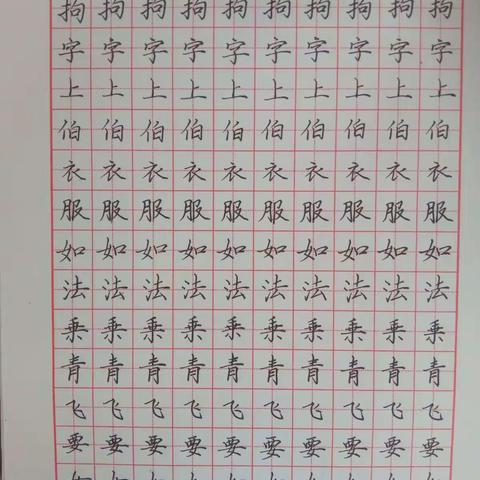 拘拘拘拘拘拘拘拘拘拘
字字字字字字字字字字
上上上上上上上上上上
伯伯伯伯伯伯伯伯伯伯
衣衣衣衣衣衣衣衣衣衣
服服服服服服服服服服
如如如如如如如如如如
法法法法法法法法法法
乘乘乘乘乘乘乘乘乘乘
青青青青青青青青青青
飞飞飞飞飞飞飞飞飞飞
要要要要要要要要要要